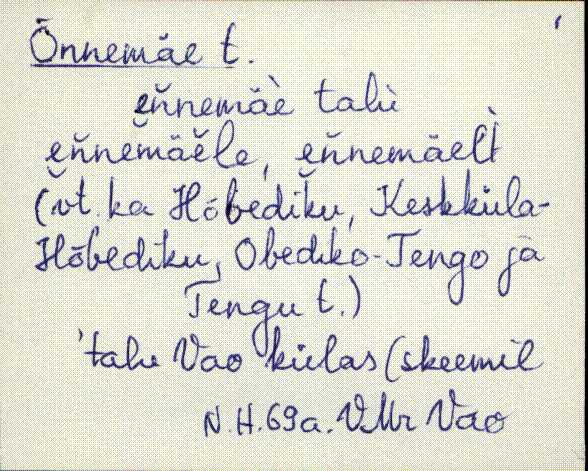 Õnnemäe t.
en̆nemäè talu
en̆nem̆äĕle, en̆nemäelt̀
(vt. ka Hõbediku, Keskküla-
Hõbediku, Obediko-Tengo ja
Tengu t.)
'talu Vao külas (skeemil
N.H. 69a. VMr Vao